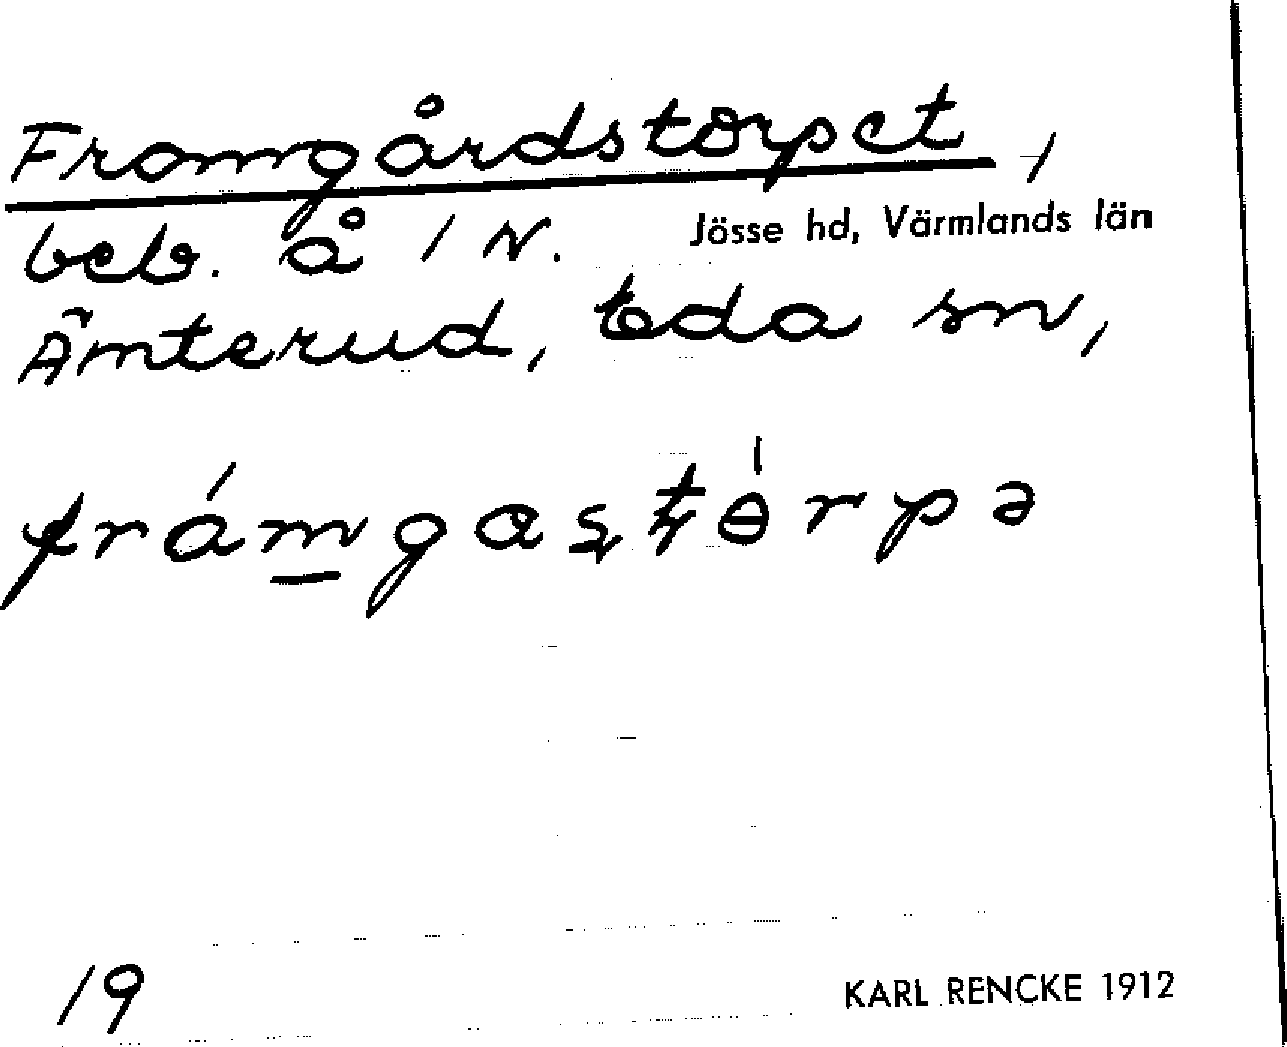 Framgårdstorpet,
beb. å 1 N.
Jösse hd, Värmlands län
Ämterud, Eda sn,
frámgastɵ́rpə
19
KARL RENCKE 1912